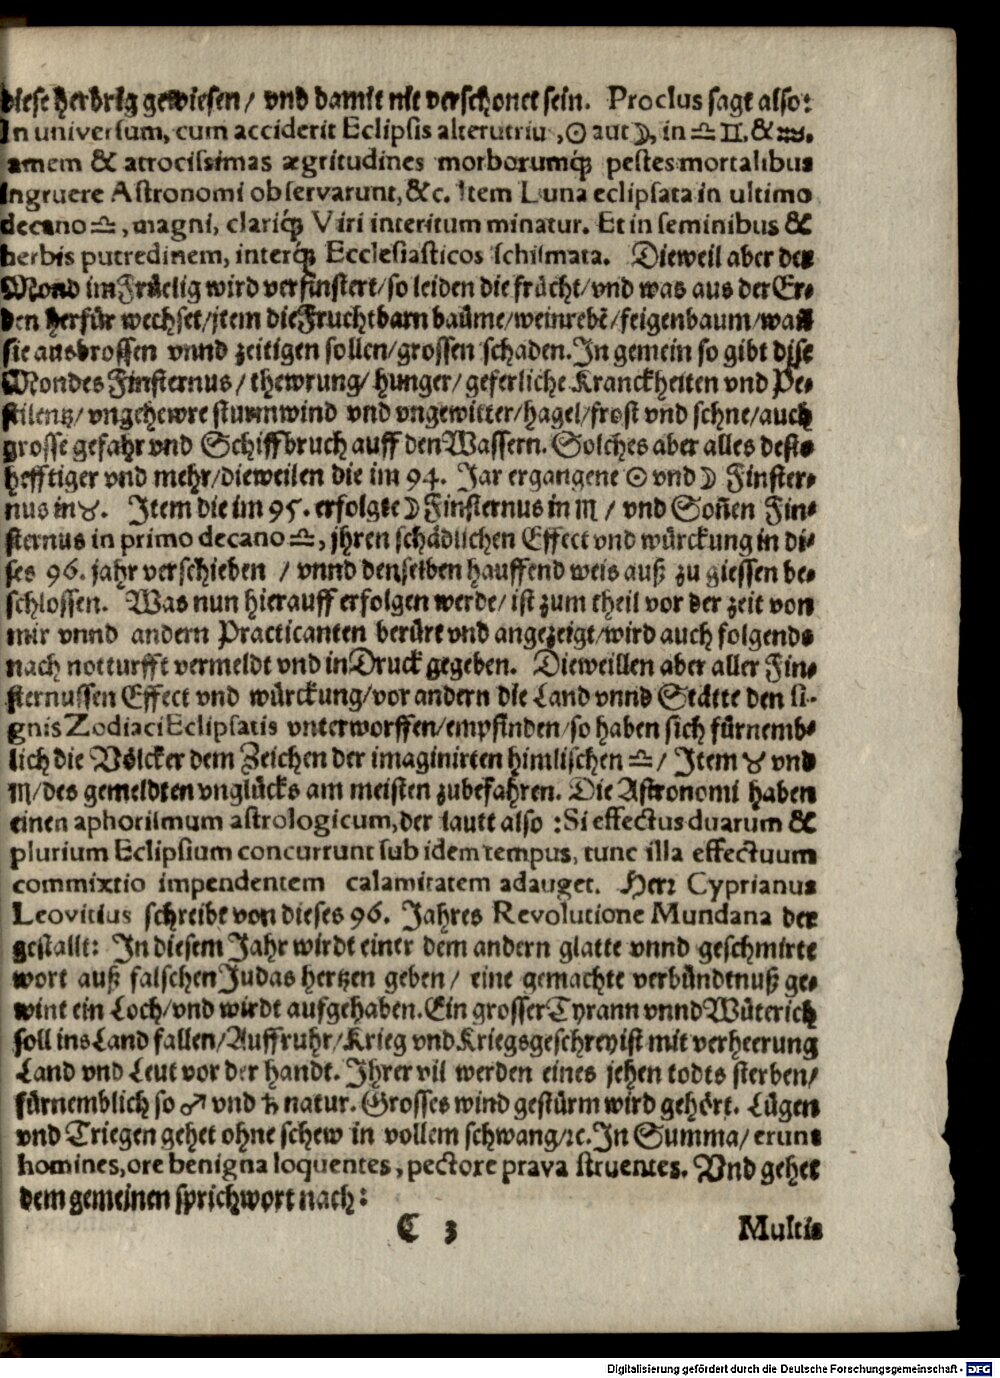 diese herdrig gewiesen / vnd damit nit verschonet sein. Proclus sagt also:
In universum, cum acciderit Eclipsis alterutriu, ☉ aut ☽, in ♎ ♊, & ♒.
amem & atrocissimas ægritudines morborumq́; pestes mortalibus
ingruere Astronomi observarunt, &c. Item Luna eclipsata in ultimo
decano ♎, magni, clariq́; Viri interitum minatur. Et in seminibus &
herbis putredinem, interq́; Ecclesiasticos schismata. Dieweil aber der
Mond im Früelig wird verfinstert / so leiden die frücht / vnd was aus der Er⸗
den herfür wechset / jtem die Fruchtbarn baüme / weinrebē / feigenbaum / wañ
sie ausbrossen vnnd zeitigen sollen / grossen schaden. In gemein so gibt dise
Mondes Finsternus / thewrung / hunger / geferliche Kranckheiten vnd Pe⸗
stilentz / vngehewre sturmwind vnd vngewitter / hagel / frost vnd schne / auch
grosse gefahr vnd Schiffbruch auff den Wassern. Solches aber alles desto
hefftiger vnd mehr / dieweilen die im 94. Jar ergangene ☉ vnd ☽ Finster⸗
nus in ♉. Item die im 95. erfolgte ☽ Finsternus in ♏ / vnd Soñen Fin⸗
sternus in primo decano ♎, jhren schädlichen Effect vnd würckung in di⸗
ses 96. jahr verschieben / vnnd denselben hauffend weis auß zu giessen be⸗
schlossen. Was nun hierauff erfolgen werde / ist zum theil vor der zeit von
mir vnnd andern Practicanten berürt vnd angezeigt / wird auch folgends
nach notturfft vermeldt vnd in Druck gegeben. Dieweillen aber aller Fin⸗
sternussen Effect vnd würckung / vor andern die Land vnnd Stätte den si-
gnis Zodiaci Eclipsatis vnterworffen / empfinden / so haben sich fürnemb⸗
lich die Völcker dem Zeichen der imaginirten himlischen ♎ / Item ♉ vnd
♏ / des gemeldten vnglücks am meisten zubefahren. Die Astronomi haben
einen aphorismum astrologicum, der lautt also : Si effectus duarum &
plurium Eclipsium concurrunt sub idem tempus, tunc illa effectuum
commixtio impendentem calamitatem adauget. Herr Cyprianus
Leovitius schreibt von dieses 96. Jahres Revolutione Mundana der
gestallt: In diesem Jahr wirdt einer dem andern glatte vnnd geschmirte
wort auß falschen Judas hertzen geben / eine gemachte verbündtnuß ge⸗
wint ein Loch / vnd wirdt aufgehaben. Ein grosser Tyrann vnnd Wüterich
soll ins Land fallen / Auffruhr / Krieg vnd Kriegsgeschrey ist mit verheerung
Land vnd Leut vor der handt. Ihrer vil werden eines jehen todts sterben /
fürnemblich so ♂ vnd ♄ natur. Grosses wind gestürm wird gehört. Lügen
vnd Triegen gehet ohne schew in vollem schwang / ꝛc. In Summa / erunt
homines, ore benigna loquentes, pectore prava struentes. Vnd gehet
dem gemeinen sprichwort nach:
C 3 Multis
Digitalisierung gefördert durch die Deutsche Forschungsgemeinschaft - DFG